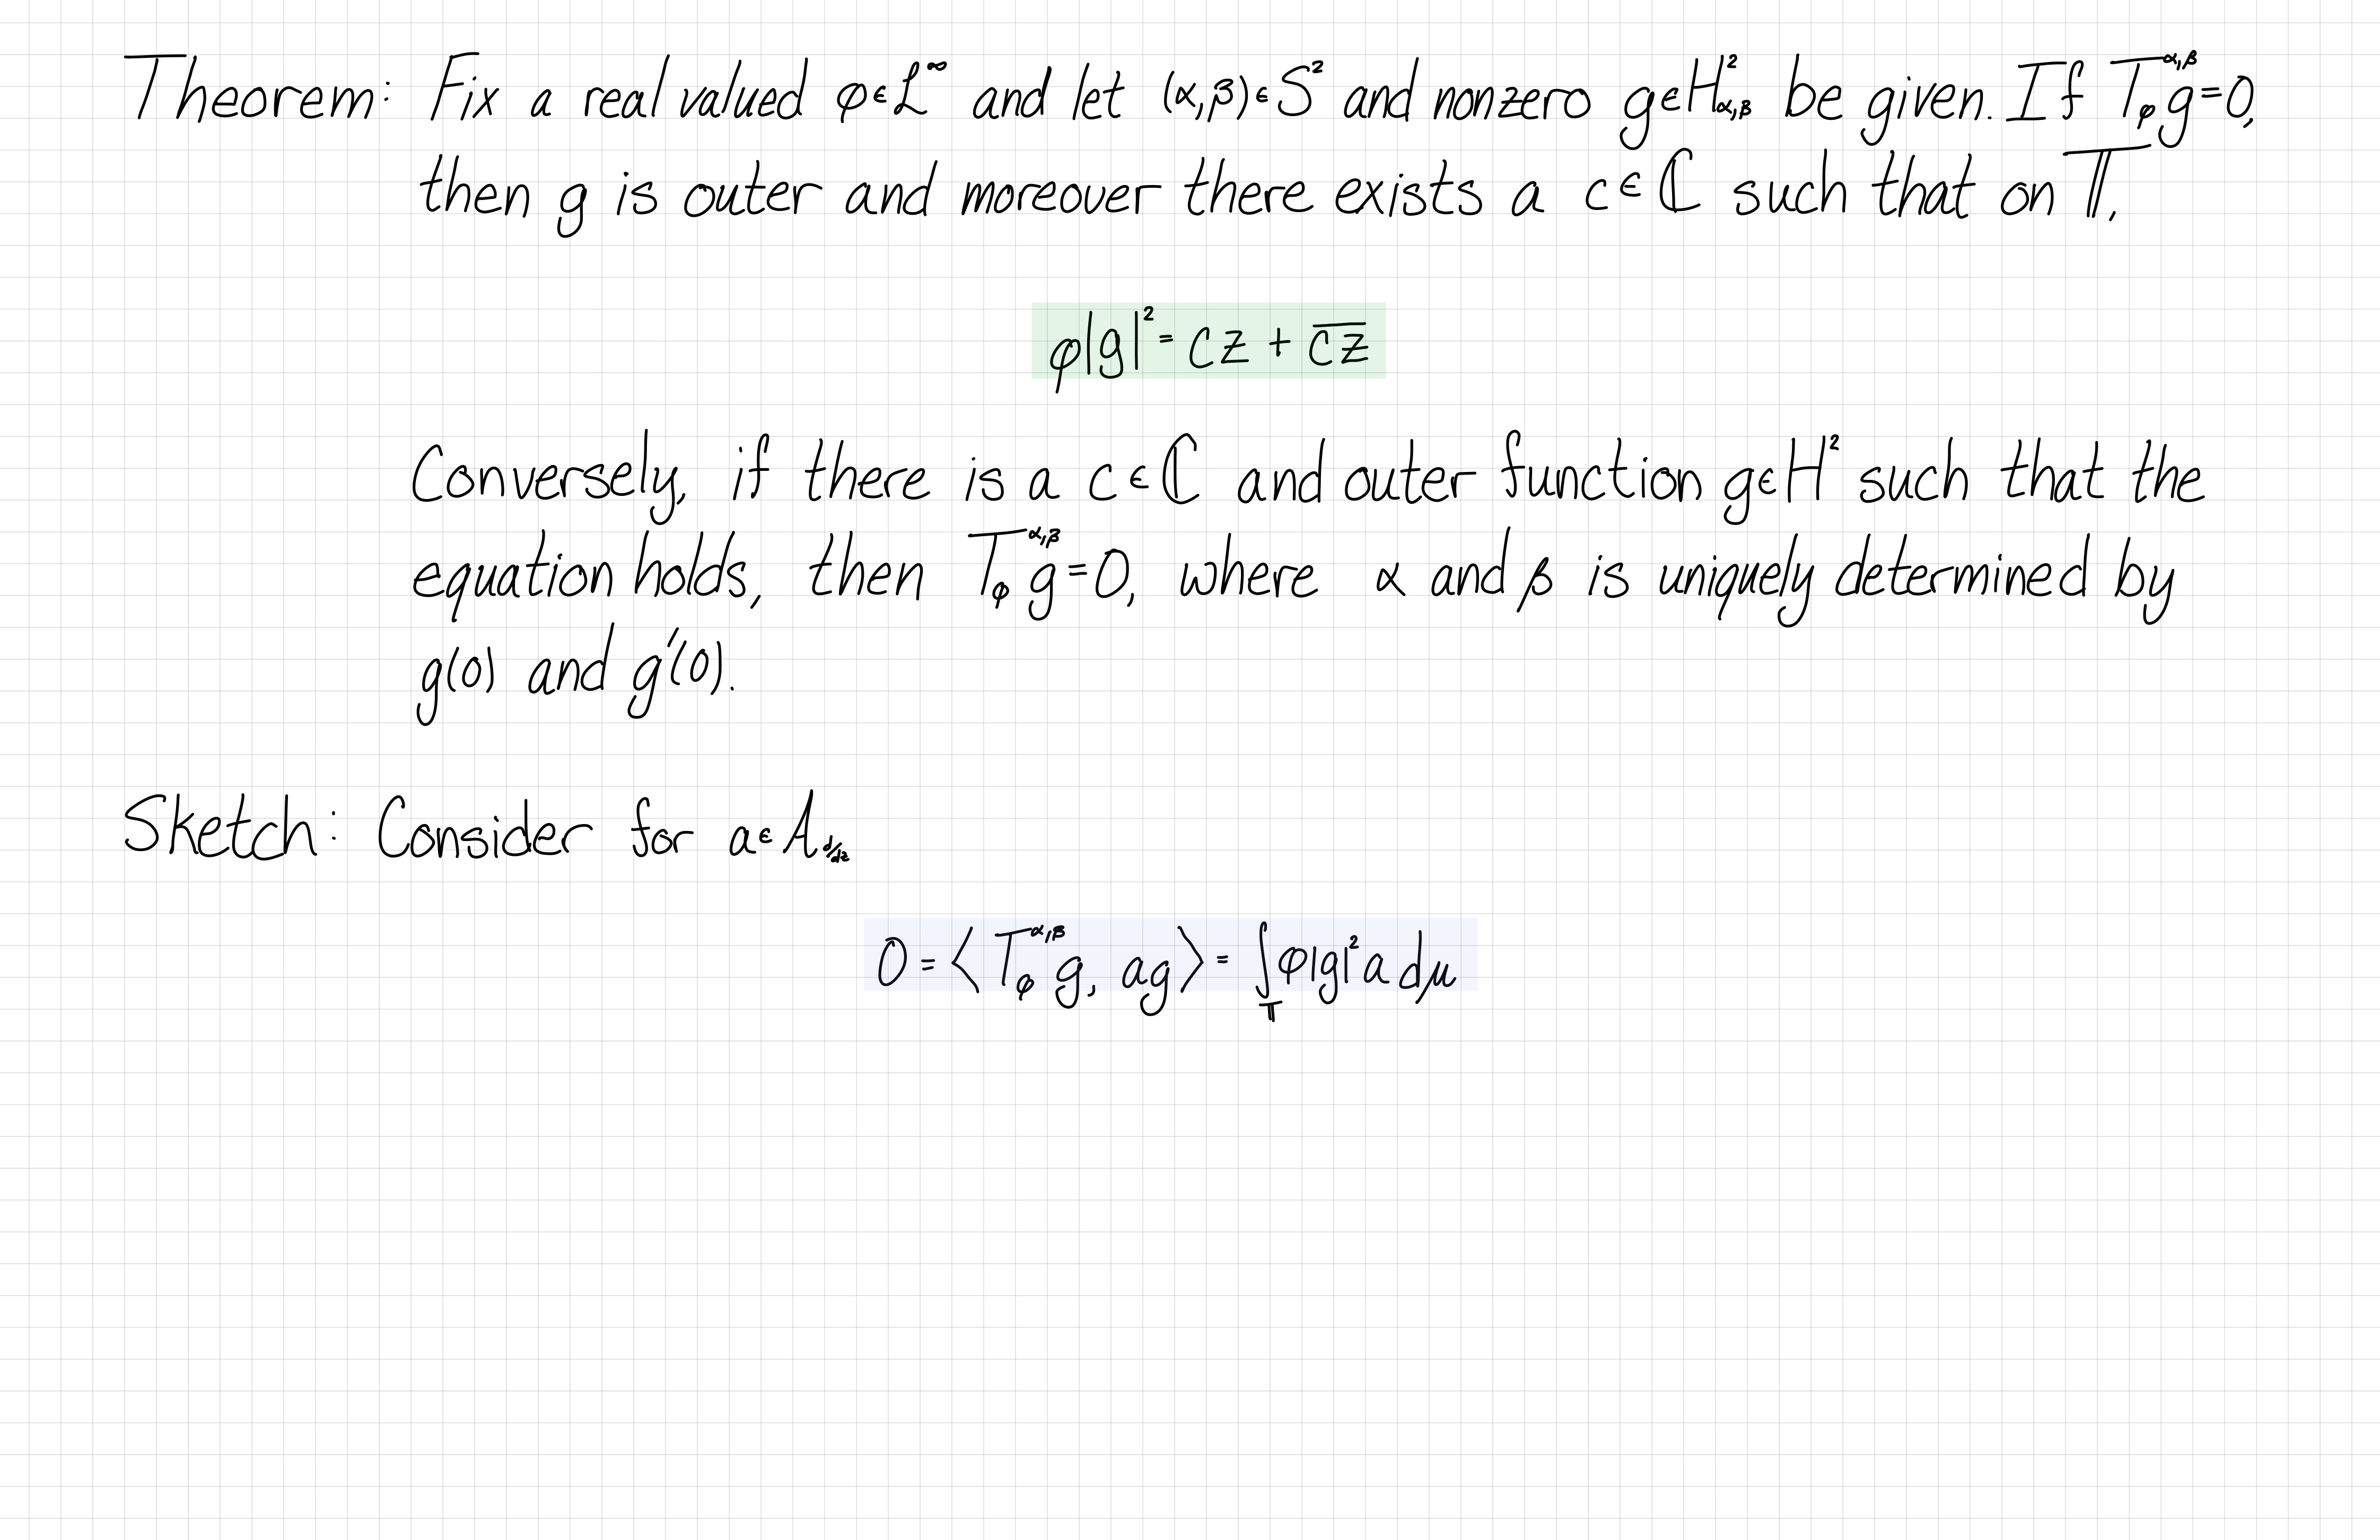 Theorem: Fix a real valued φ∈L^∞ and let (α,β)∈S² and nonzero g∈H²_{α,β} be given. If T_φ^{α,β} g=0,
then g is outer and moreover there exists a c∈ℂ such that on 𝕋,
φ|g|² = cz + \overline{cz}
Conversely, if there is a c∈ℂ and outer function g∈H² such that the
equation holds, then T_φ^{α,β} g=0, where α and β is uniquely determined by
g(0) and g′(0).
Sketch: Consider for a∈A_{d/dz}
0 = ⟨T_φ^{α,β} g, ag⟩ = ∫_𝕋 φ|g|² a dμ